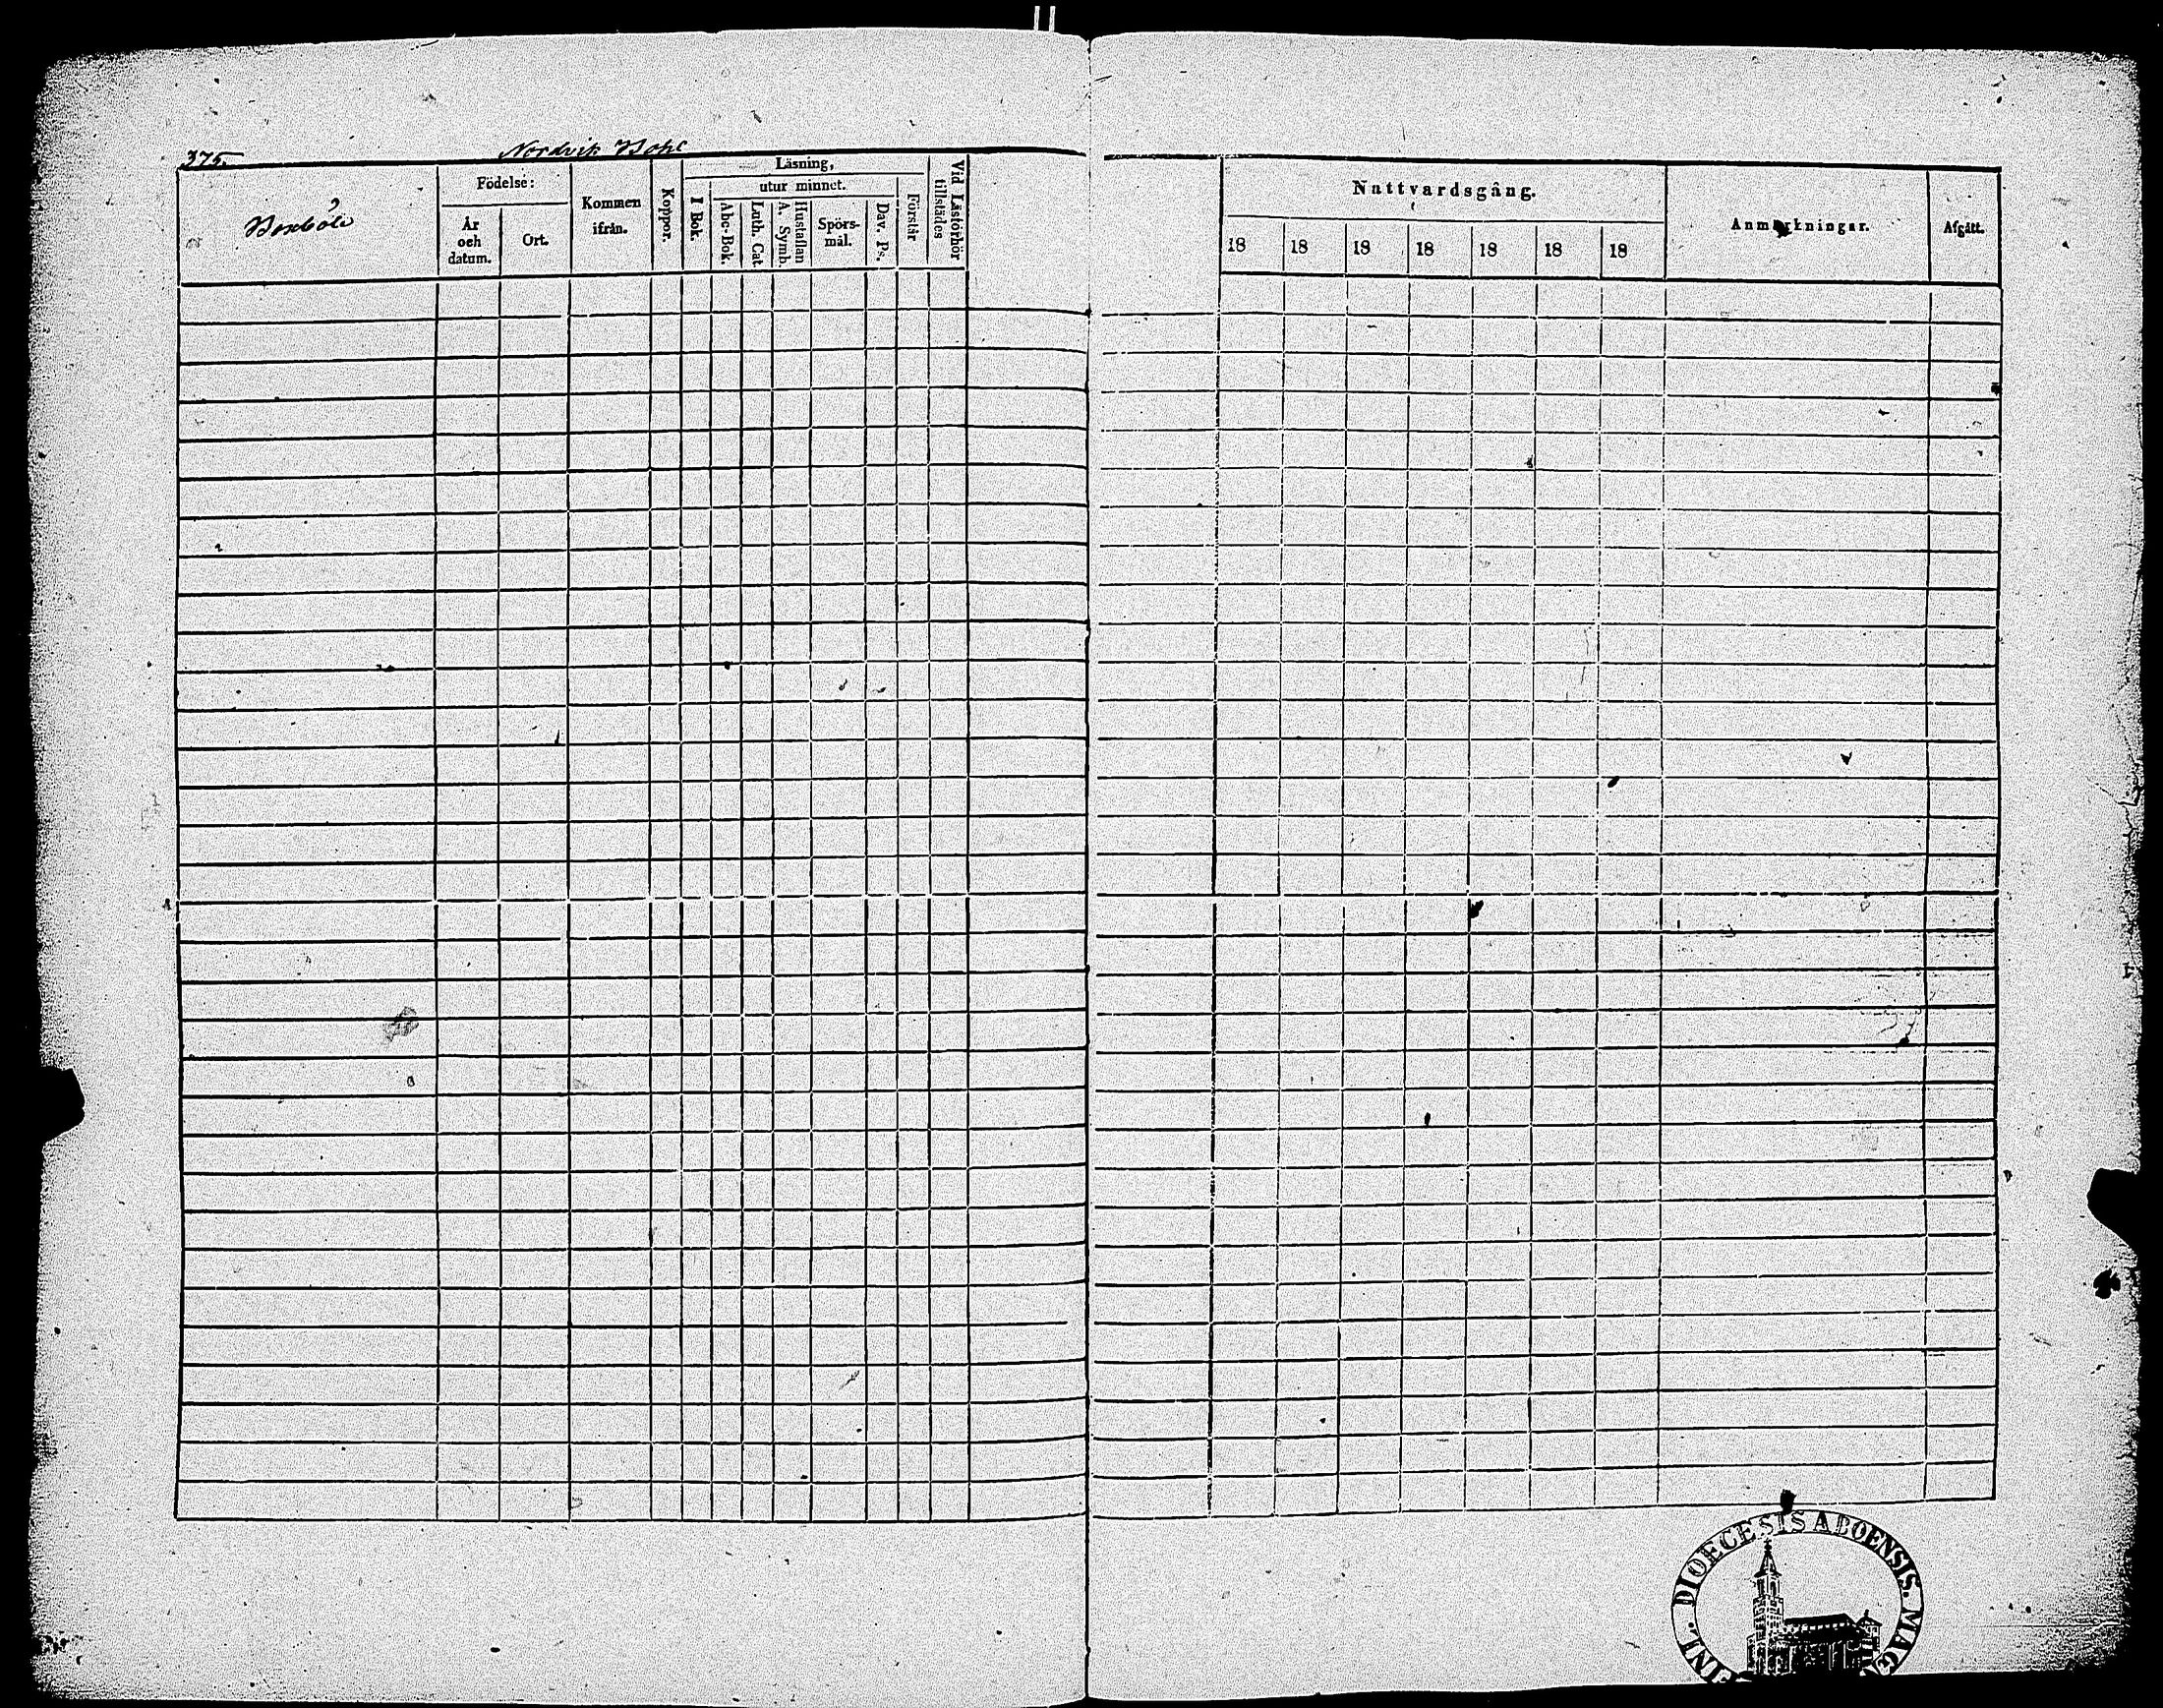 375.
Nordvik Bohl
Boxböle
Födelse:
År
och
datum.
Ort.
Kommen
ifrån.
Koppor.
Läsning,
utur minnet.
I Bok.
Abc-Bok.
Luth. Cat.
A. Symb.
Hustaflan
Spörs-
mål.
Dav. Ps.
Förstår
Vid Läsförhör
tillstädes
Nattvardsgång.
18 18 18 18 18 18 18
Anmärkningar.
Afgått.
DIOECESIS ABOENSIS. MAG